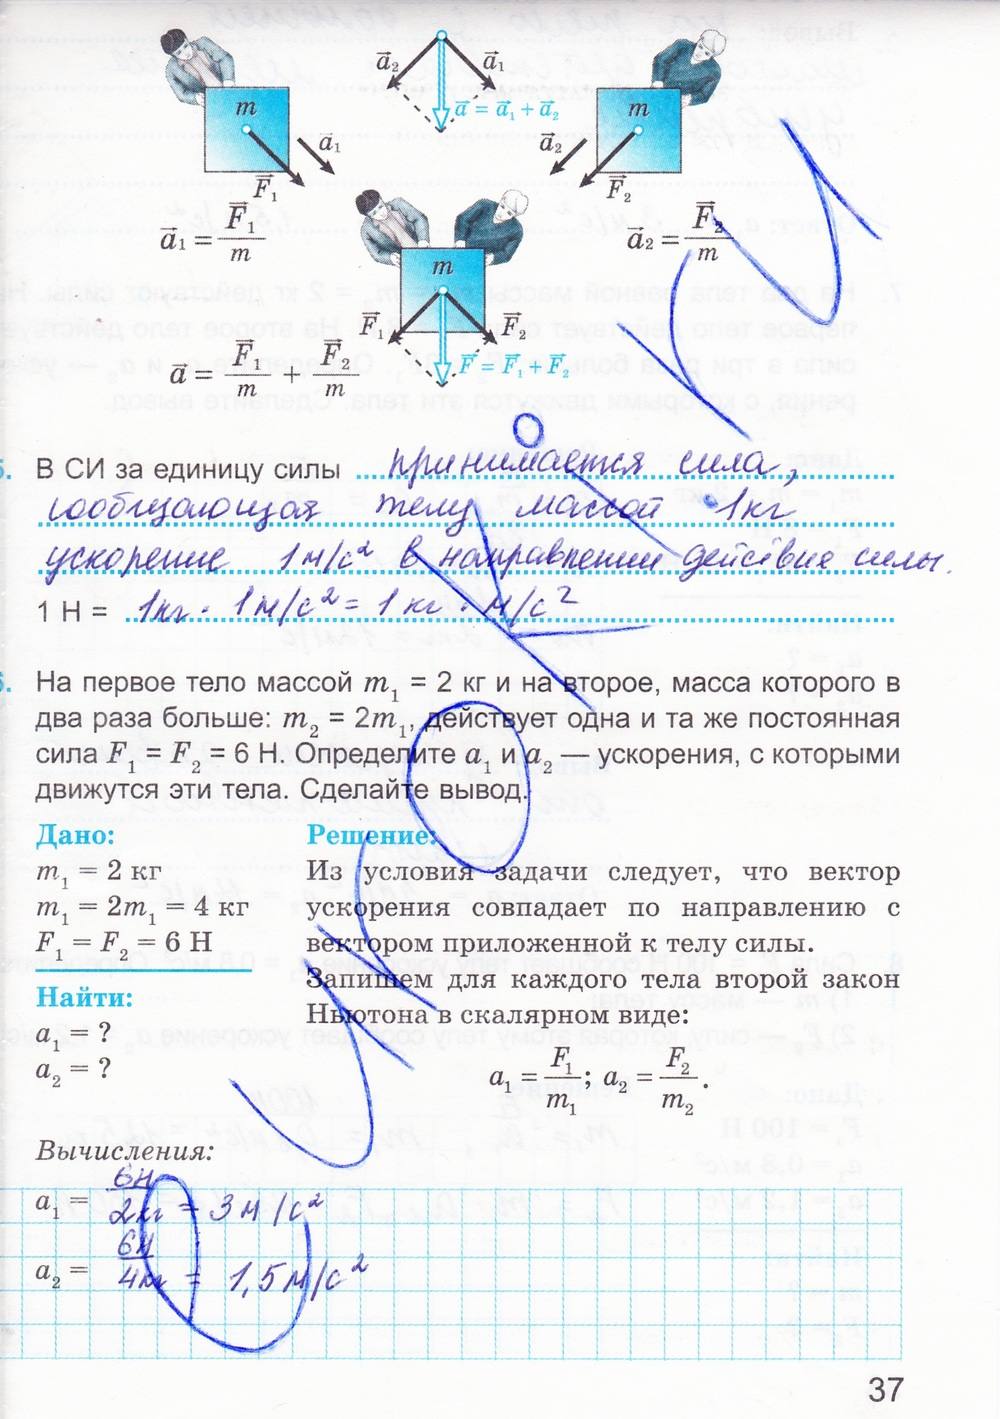 m
a⃗₂ a⃗₁
a⃗ = a⃗₁ + a⃗₂
m
a⃗₁
F⃗₁
a⃗₂
F⃗₂
a⃗₁ = F⃗₁/m
a⃗₂ = F⃗₂/m
m
F⃗₁ F⃗₂
F⃗ = F⃗₁ + F⃗₂
a⃗ = F⃗₁/m + F⃗₂/m
В СИ за единицу силы принимается сила,
сообщающая телу массой 1кг
ускорение 1м/с² в направлении действия силы.
1 Н = 1кг · 1м/с² = 1 кг · м/с²
На первое тело массой m₁ = 2 кг и на второе, масса которого в
два раза больше: m₂ = 2m₁, действует одна и та же постоянная
сила F₁ = F₂ = 6 Н. Определите a₁ и a₂ — ускорения, с которыми
движутся эти тела. Сделайте вывод.
Дано:
m₁ = 2 кг
m₁ = 2m₁ = 4 кг
F₁ = F₂ = 6 Н
Найти:
a₁ = ?
a₂ = ?
Решение:
Из условия задачи следует, что вектор
ускорения совпадает по направлению с
вектором приложенной к телу силы.
Запишем для каждого тела второй закон
Ньютона в скалярном виде:
a₁ = F₁/m₁; a₂ = F₂/m₂.
Вычисления:
a₁ = 6Н/2кг = 3м/с²
a₂ = 6Н/4кг = 1,5м/с²
37